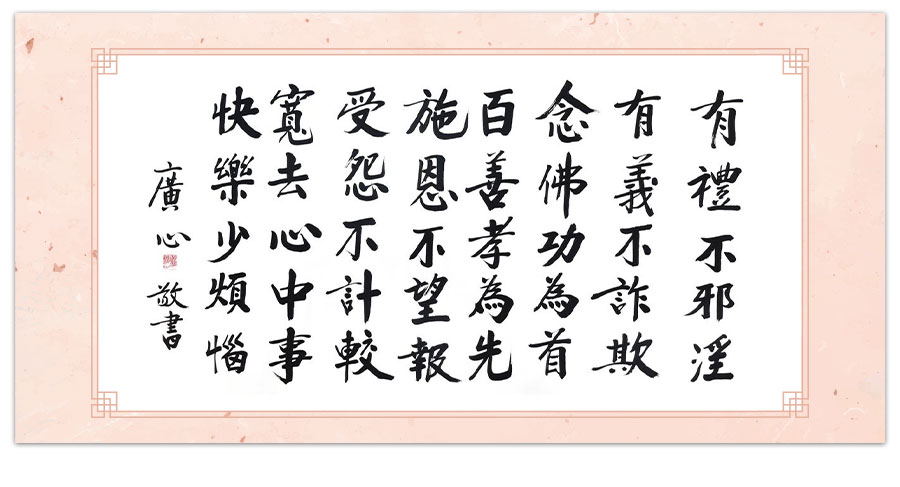 有禮不邪淫
有義不詐欺
念佛功為首
百善孝為先
施恩不望報
受怨不計較
寬去心中事
快樂少煩惱
廣心 敬書